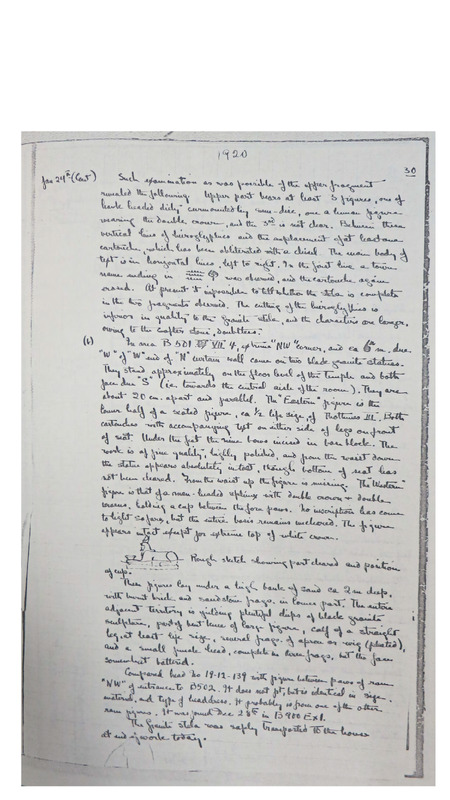 1920
30
Jan 24th (Cont)
Such examination as was possible of the upper fragment
revealed the following. Upper part bears at least 3 figures, one of
hawk headed deity surmounted by sun-disc, one a human figure
wearing the double crown, and the 3rd is not clear. Between them
vertical line of hieroglyphics and the emplacement of at least one
cartouche, which has been obliterated with a chisel. The main body of
text is in horizontal lines, left to right. In the first line a town
name ending in was observed, and the cartouche again
erased. At present it impossible to tell whether the stela is complete
in the two fragments observed. The cutting of the hieroglyphics is
inferior in quality to the granite stela, and the characters are larger,
owing to the softer stone, doubtless.
(b) In area B 501 VII 4, extreme "NW" corner, and ca 6 m. due
"W" of "W" end of "N" curtain wall came on two black granite statues.
They stand approximately on the floor level of the temple and both
face due "S" (i.e. towards the central aisle of the room). They are
about 20 cm. apart and parallel. The "Eastern" figure is the
lower half of a seated figure, ca 1/2 life size, of Thothmes III. Both
cartouches with accompanying text on either side of legs on front
of seat. Under the feet the nine bows incised in base block. The
work is of fine quality, highly polished, and from the waist down
the statue appears absolutely intact, though bottom of seat has
not been cleared. From the waist up the figure is missing. The "Western"
figure is that of a ram-headed sphinx with double crown & double
uraeus, holding a cup between the fore paws. No inscription has come
to light so far, but the entire basis remains uncleared. The figure
appears intact except for extreme top of white crown.
Rough sketch showing part cleared and position
of cup.
These figures lay under a high bank of sand ca 2 m deep,
with burnt brick and sandstone frags. in lower part. The entire
adjacent territory is yielding plentiful chips of black granite
sculpture, part of bent knee of large figure, calf of a straight
leg, at least life size, several frags. of apron or wig (pleated),
and a small female head, complete in three frags, but the face
somewhat battered.
Compared head No 19-12-139 with figure between paws of ram
"NW" of entrance to B502. It does not fit, but is identical in size,
material, and type of headdress. It probably is from one of the other
ram figures. It was found Dec 28th in B 900 Ext.
The Granite stela was safely transported to the house
at end of work today.